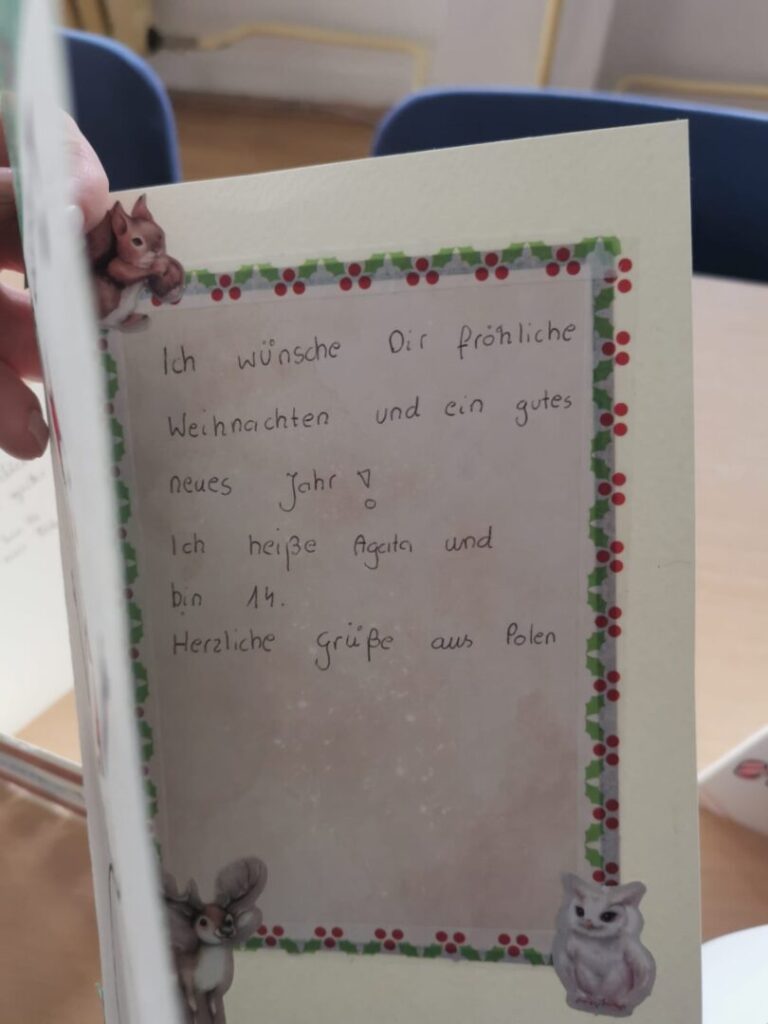 Ich wünsche Dir fröhliche
Weihnachten und ein gutes
neues Jahr!
Ich heiße Agata und
bin 14.
Herzliche Grüße aus Polen